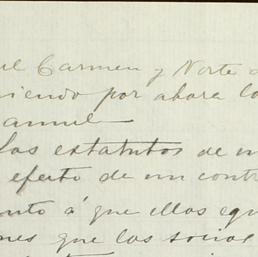 el Carmen y Norte
iendo por ahora lo
anuel
las estatutos de
efecto de un contr
nto á que ellos equ
nes que las social